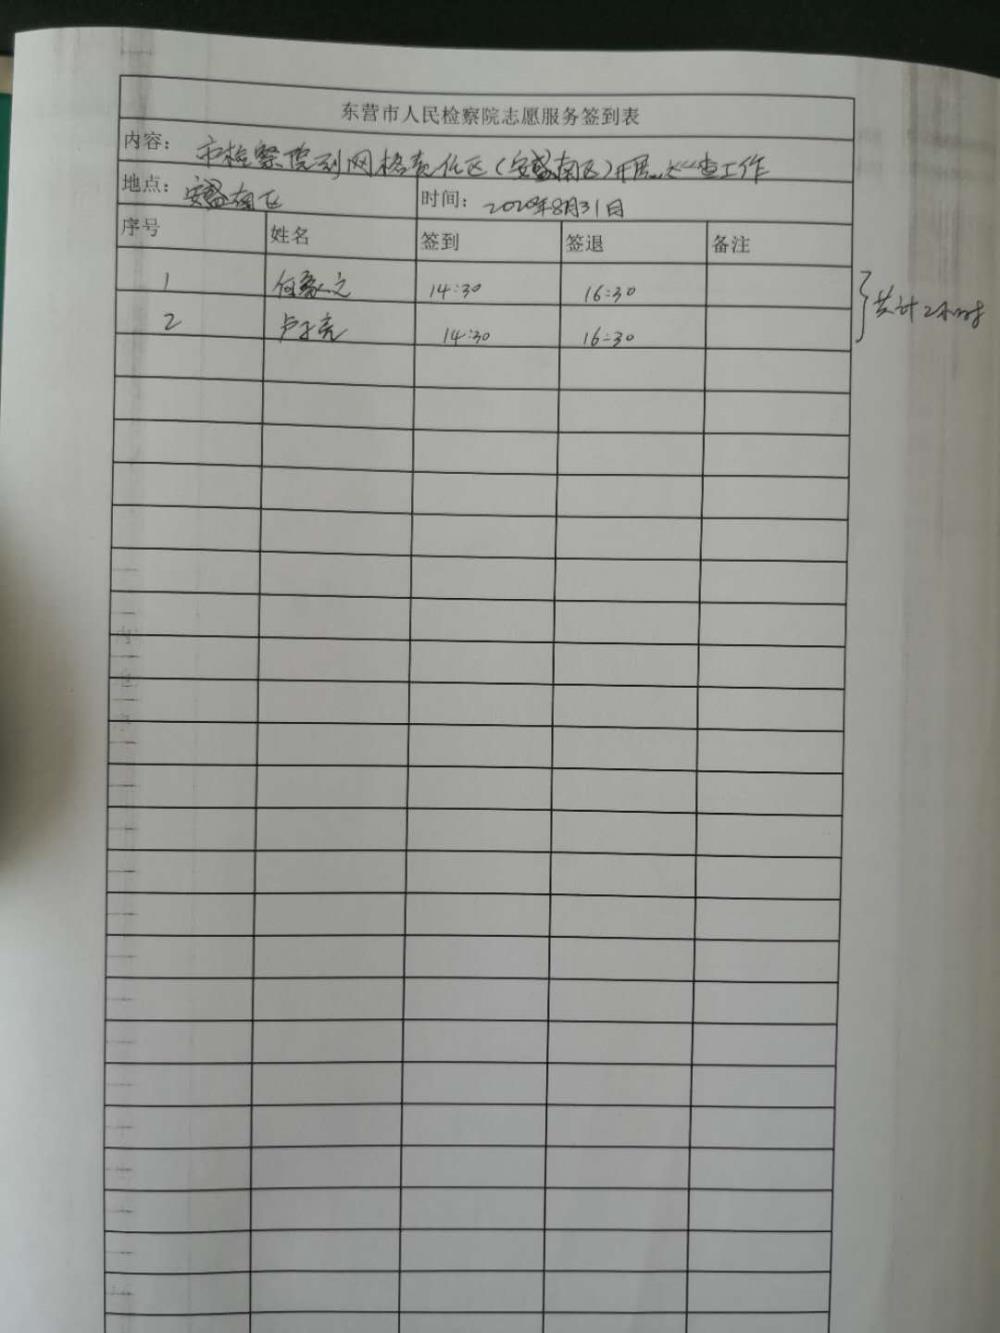 东营市人民检察院志愿服务签到表
内容：市检察院到网格责任区（安盛南区）开展 查工作
地点：安盛南区 时间：2020年8月31日
序号 姓名 签到 签退 备注
1 何 14:30 16:30
2 卢 亮 14:30 16:30
共计2小时